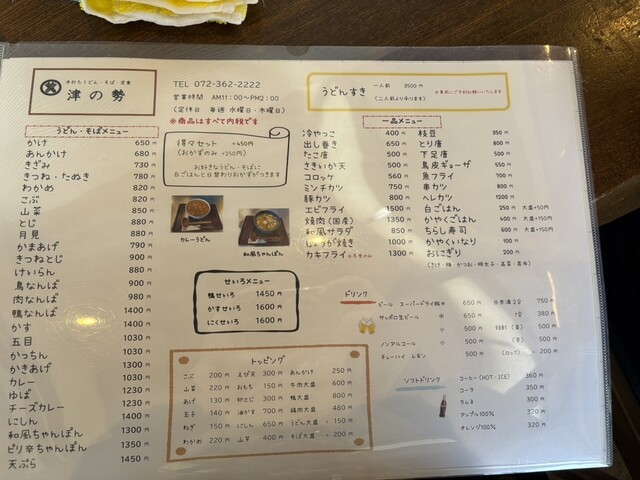 手打ちうどん・そば・定食
津の勢
TEL 072-362-2222
営業時間 AM11:00~PM2:00
(定休日 毎週 水曜日・木曜日)
※商品はすべて内税です
うどんすき 一人前 3500円
(二人前より承ります)
うどん・そばメニュー
かけ 650円
あんかけ 680円
きざみ 730円
きつね・たぬき 780円
わかめ 820円
こぶ 820円
山菜 850円
とじ 880円
月見 880円
かまあげ 790円
きつねとじ 900円
けいらん 880円
鳥なんば 900円
肉なんば 980円
鴨なんば 1400円
かす 1400円
五目 1030円
かっちん 1030円
かきあげ 1300円
カレー 1030円
ゆば 1230円
チーズカレー 1230円
にしん 1400円
和風ちゃんぽん 1300円
ピリ辛ちゃんぽん 1350円
天ぷら 1450円
得々セット +450円
(おかずのみ +250円)
お好きなうどん・そばに
白ごはんと日替わりおかずがつきます
カレーうどん
和風ちゃんぽん
せいろメニュー
鴨せいろ 1450円
かすせいろ 1600円
にくせいろ 1600円
トッピング
こぶ 200円 えび天 300円 あんかけ 250円
山菜 220円 おもち 150円 牛肉大盛 600円
あげ 130円 卵とじ 300円 鴨大盛 800円
玉子 140円 油かす 700円 鶏肉大盛 480円
ねぎ 150円 にしん 650円 うどん大盛 + 150円
わかめ 220円 山芋 400円 そば大盛 + 200円
一品メニュー
冷やっこ 400円
出し巻き 650円
たこ唐 500円
さきいか天 500円
コロッケ 560円
ミンチカツ 750円
豚カツ 900円
エビフライ 1500円
焼肉(国産) 1350円
和風サラダ 850円
しょうが焼き 1000円
カキフライ 1300円
枝豆 350円
とり唐 800円
下足唐 500円
鳥皮ギョーザ 550円
魚フライ 700円
串カツ 800円
ヘレカツ 1200円
白ごはん 250円 大盛+50円
かやくごはん 400円 大盛+150円
ちらし寿司 600円 大盛+150円
かやくいなり 100円
おにぎり 200円
ドリンク
ビール スーパードライ瓶 中 650円
小 550円
サッポロ生ビール 中 650円
小 500円
ノンアルコール 500円
チューハイ レモン 450円
日本酒 2合 750円
1合 380円
500円
500円
(ロック) + 200円
ソフトドリンク
コーヒー(HOT・ICE) 360円
コーラ 350円
ラムネ 300円
アップル100% 320円
オレンジ100% 320円